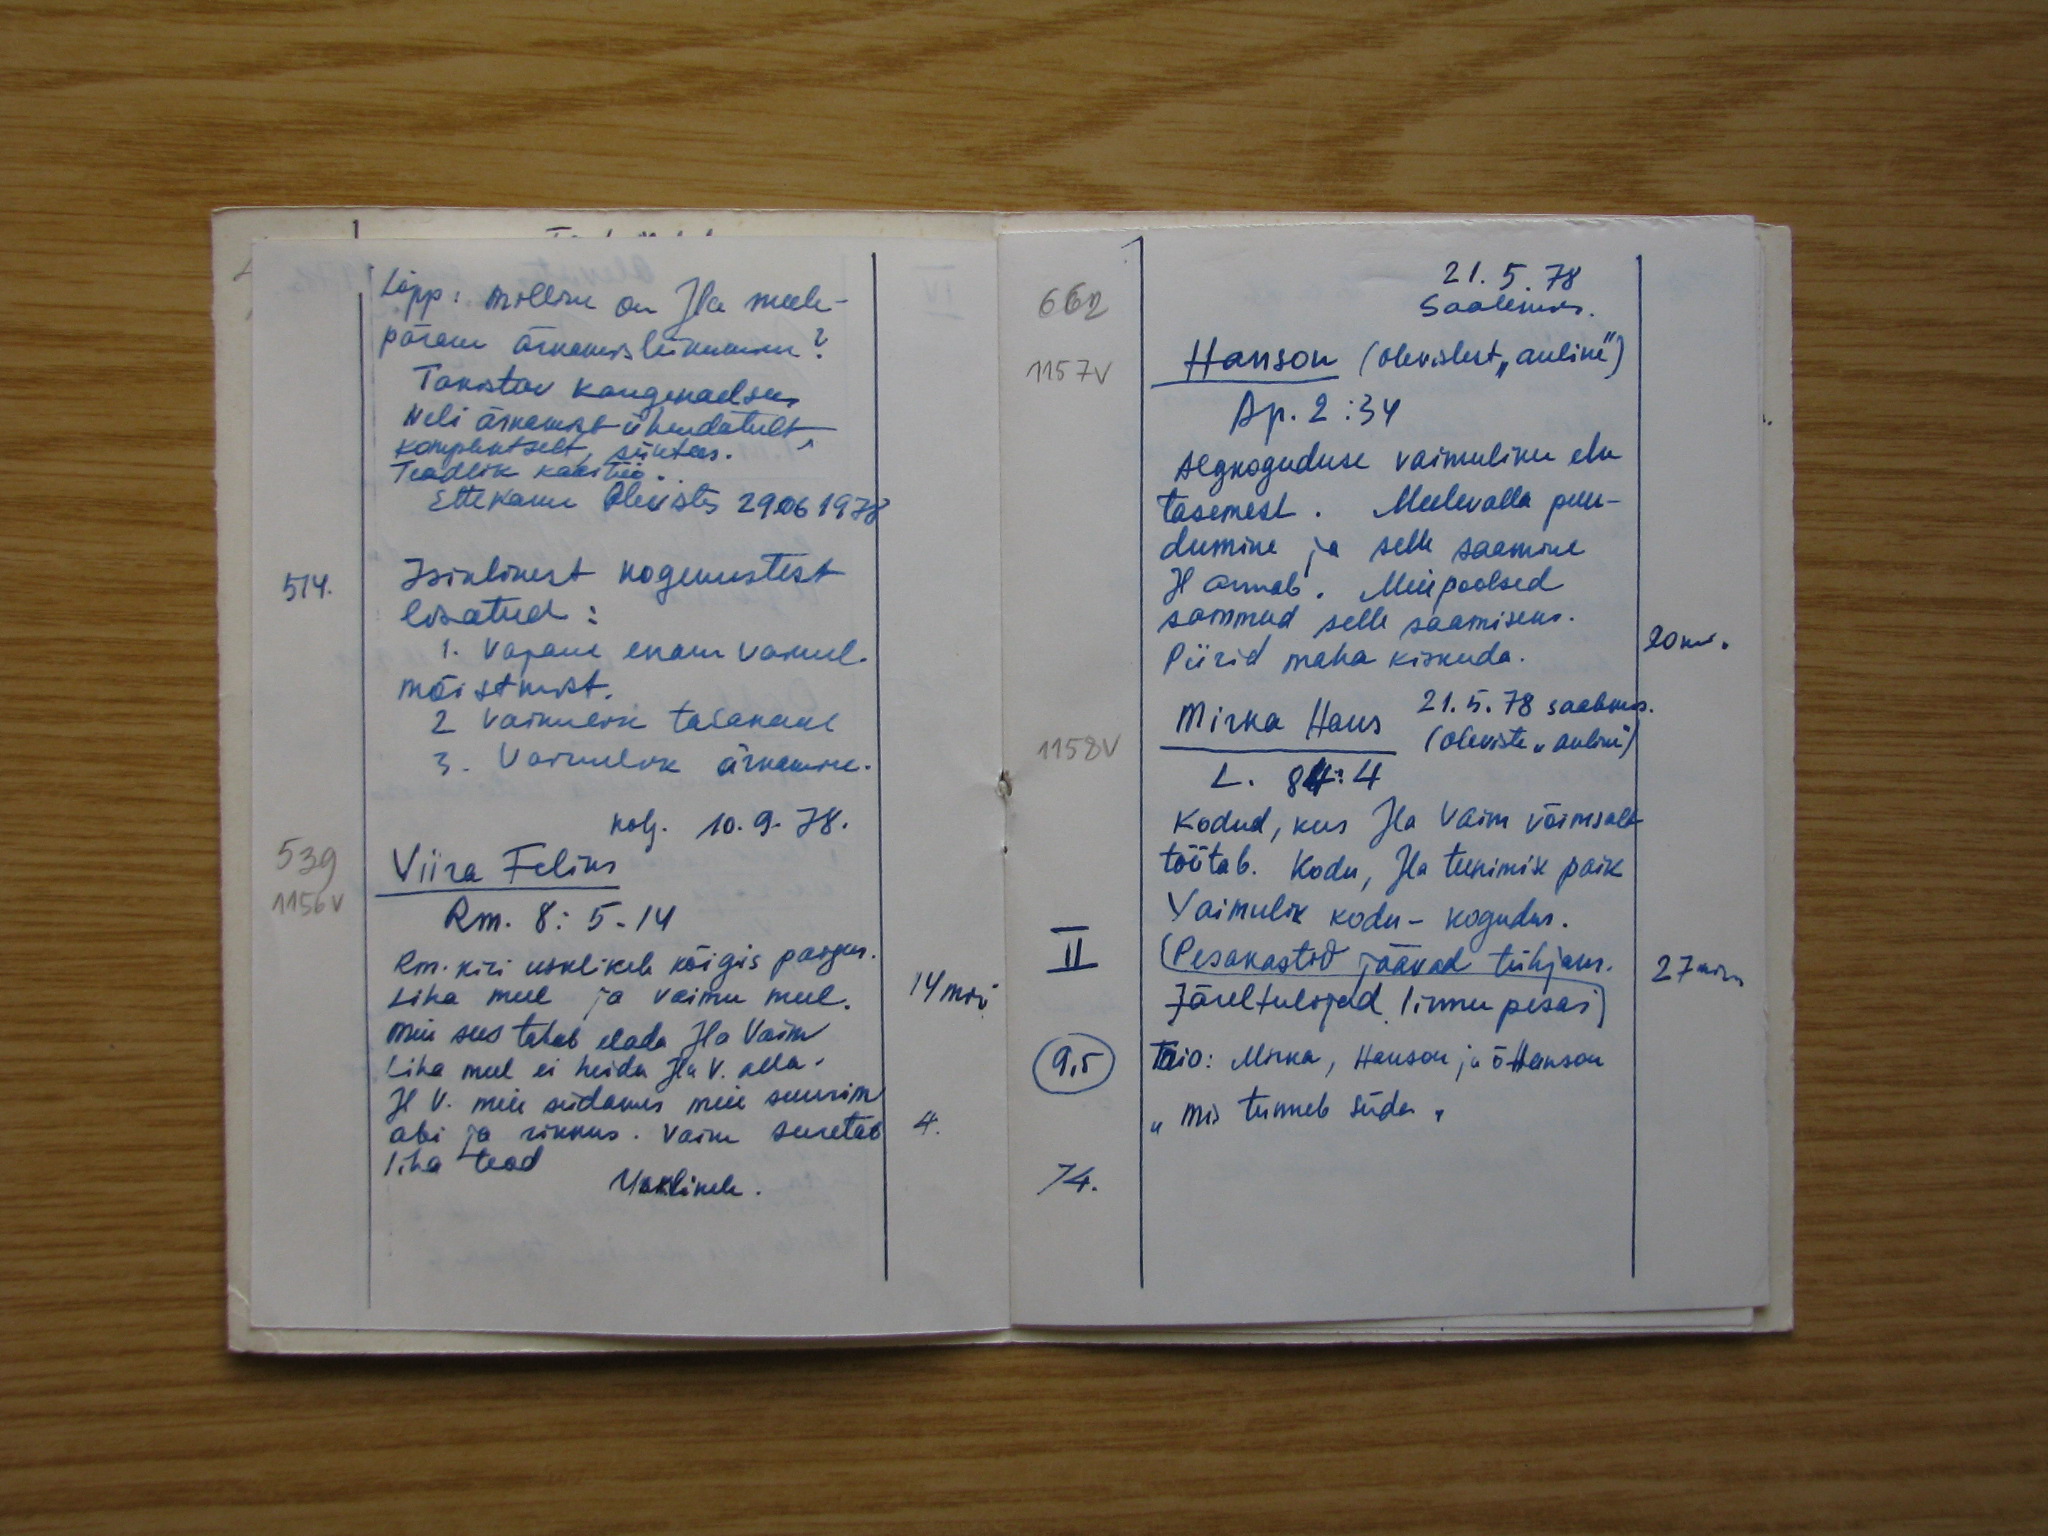 Lõpp: milline on Jla meele-
päram ärkamisliikumine?
Takistav kangekaelsus
Neli ärkamist ühendatult
komplektselt, süntees.
Teadlik käsitöö.
Ettekanne Olevistes 29.06 1978
514.
Isiklikest kogemustest
lisatud:
1. Vajame enam vaimul.
mõistmist.
2 Vaimulik tasakaal
3. Vaimulik ärkamine.
Kolj. 10.9.78.
539
1156v
Viira Feliks
Rm. 8: 5-14
Rm. kiri usklikele kõigis paigus.
Liha meel ja vaimu meel.
14 min
Meie sees tahab elada Jla Vaim
Liha meel ei heida Jla V. alla.
JlV. meie südames meie suurim
abi ja rikkus. Vaim suretab
4.
liha teod
Usklikele.
662
21.5.78
Saalemis.
1157v
Hanson (Olevistest „auline")
Ap. 2:34
Algkoguduse vaimuliku elu
tasemest. Meelevalla puu-
dumine ja selle saamine
Jl annab. Meiepoolsed
sammud selle saamiseks.
Piirid maha kiskuda.
20 min.
1158v
Mirka Hans
21.5.78 Saalemis.
(Oleviste „auline")
L. 84:4
Kodud, kus Jla Vaim võimsalt
töötab. Kodu, Jla teenimise paik
Vaimulik kodu - kogudus.
II
(Pesakastid jäävad tühjaks.
27 min
Järeltulijad linnu pesas)
9,5
Trio: Mirka, Hanson ja õ Hanson
„Mis tunneb süda"
74.